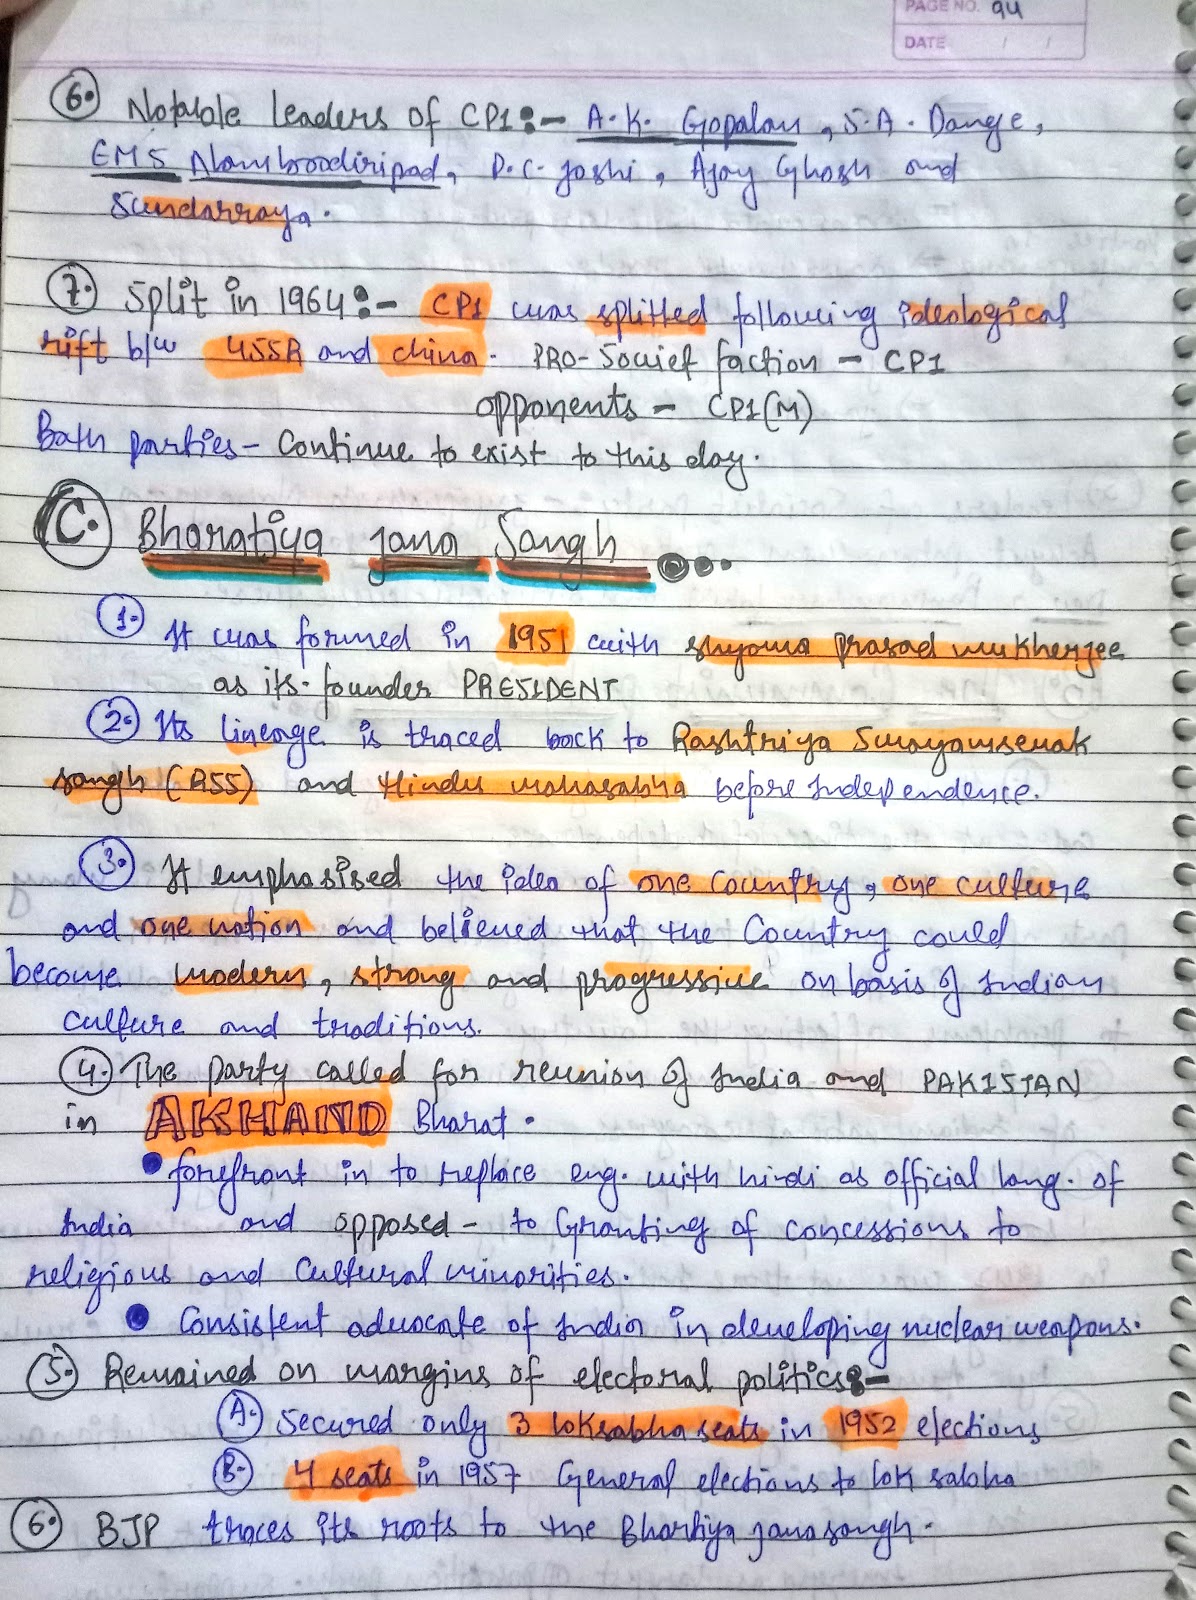 PAGE NO. 94
DATE / /
6. Notable leaders of CPI :- A.K. Gopalan, S.A. Dange,
EMS Namboodiripad, P.C. Joshi, Ajay Ghosh and
Sundarraya.
7. Split in 1964 :- CPI was splitted following ideological
rift b/w USSR and china. PRO-Soviet faction - CPI
opponents - CPI(M)
Both parties - Continue to exist to this day.
C. Bharatiya jana Sangh
1. It was formed in 1951 with shyama prasad mukherjee
as its founder PRESIDENT
2. Its lineage is traced back to Rashtriya Swayamsevak
sangh (RSS) and Hindu mahasabha before Independence.
3. It emphasised the idea of one country, one culture
and one nation and believed that the Country could
become modern, strong and progressive on basis of Indian
culture and traditions.
4. The party called for reunion of India and PAKISTAN
in AKHAND Bharat.
• forefront in to replace eng. with hindi as official lang. of
India and opposed - to Granting of concessions to
religious and Cultural minorities.
• Consistent advocate of India in developing nuclear weapons.
5. Remained on margins of electoral politics :-
A. Secured only 3 loksabha seats in 1952 elections
B. 4 seats in 1957 General elections to lok sabha
6. BJP traces its roots to the Bhartiya janasangh.